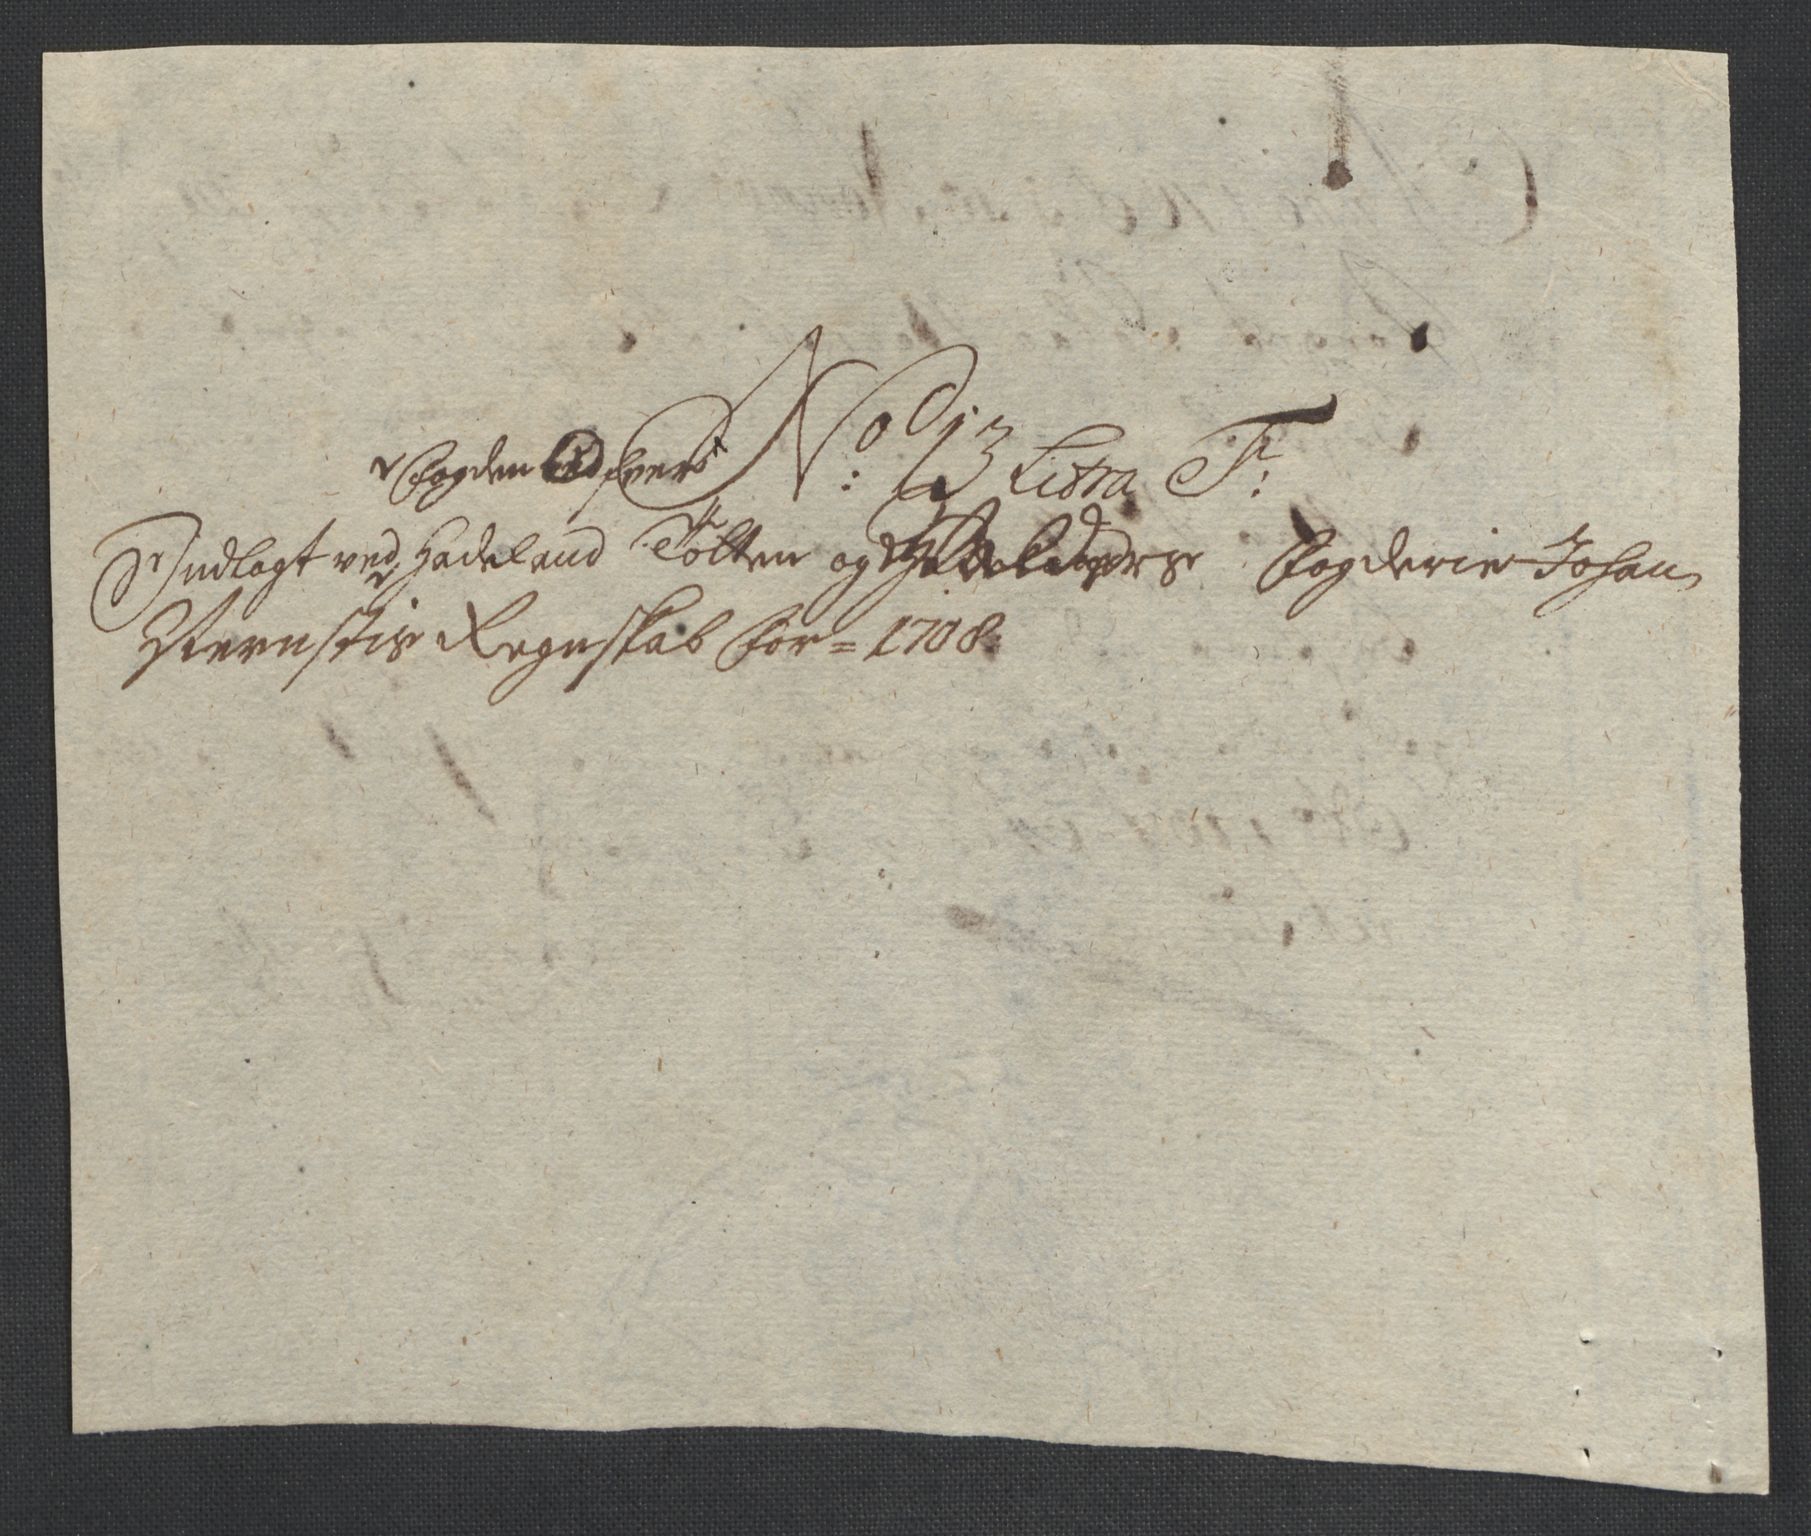 No: 13 Litra F:
Fogden
Indlagt ved Hadeland Tölten og Valders Fogderie Johan
Diernstis Regnskab for = 1708